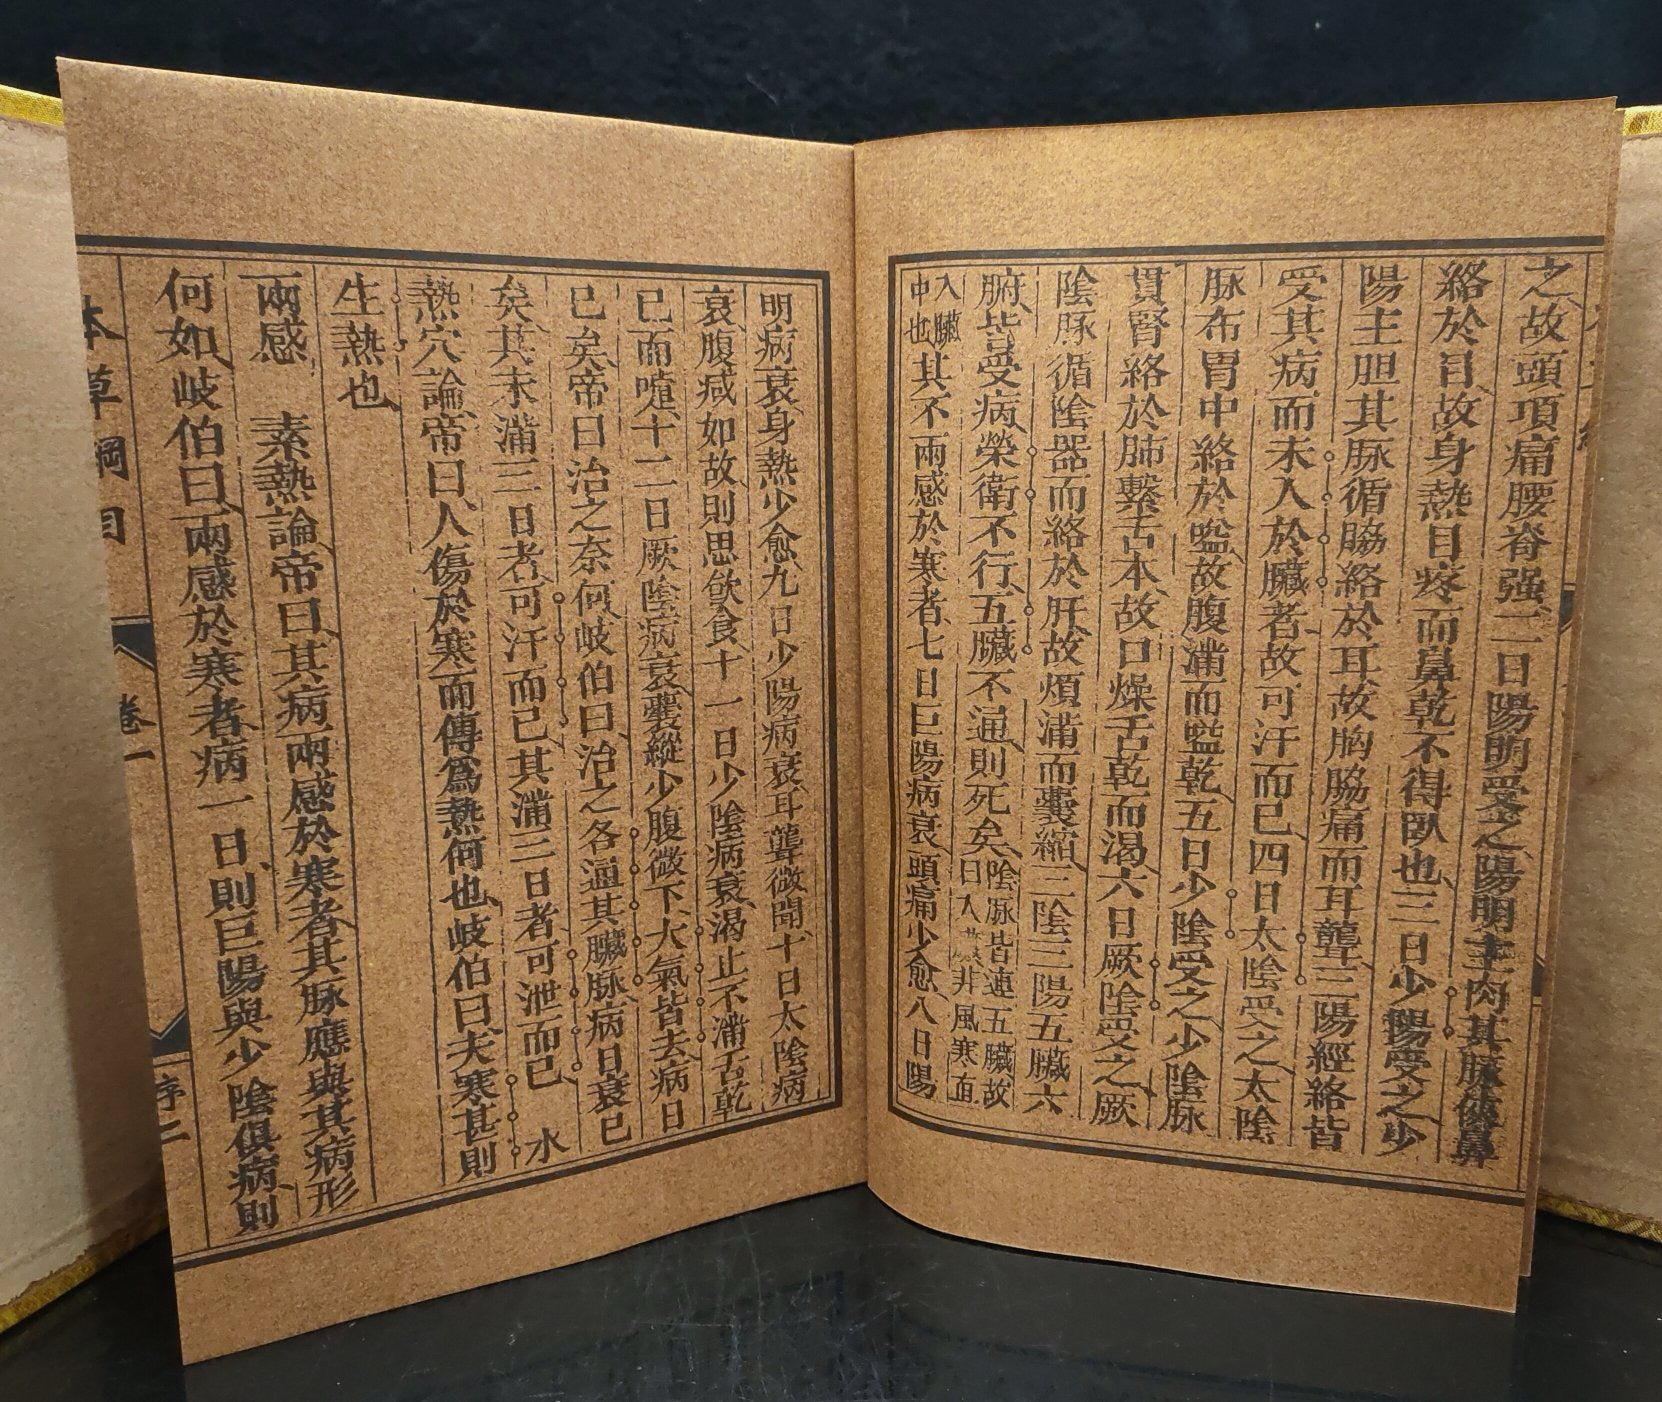 之故頭項痛腰脊强二日陽明受之陽明主肉其脉俠鼻
絡於目故身熱目疼而鼻乾不得臥也三日少陽受之少
陽主胆其脉循脇絡於耳故胸脇痛而耳聾三陽經絡皆
受其病而未入於臟者故可汗而已四日太陰受之太陰
脉布胃中絡於嗌故腹滿而嗌乾五日少陰受之少陰脉
貫腎絡於肺繫舌本故口燥舌乾而渴六日厥陰受之厥
陰脉循陰器而絡於肝故煩滿而囊縮三陰三陽五臟六
腑皆受病榮衛不行五臟不通則死矣陰脉皆連五臟故曰入 非風寒直
入臟中也其不兩感於寒者七日巳陽病衰頭痛少愈八日陽
明病衰身熱少愈九日少陽病衰耳聾微聞十日太陰病
衰腹减如故則思飲食十一日少陰病衰渴止不滿舌乾
已而嚏十二日厥陰病衰囊縱少腹微下大氣皆去病日
已矣帝曰治之奈何岐伯曰治之各通其臟脉病日衰已
矣其未滿三日者可汗而已其滿三日者可泄而已 水
熱穴論帝曰人傷於寒而傳爲熱何也岐伯曰夫寒甚則
生熱也
兩感 素熱論帝曰其病兩感於寒者其脉應與其病形
何如岐伯曰兩感於寒者病一日則巨陽與少陰俱病則
本草綱目 卷一 序二